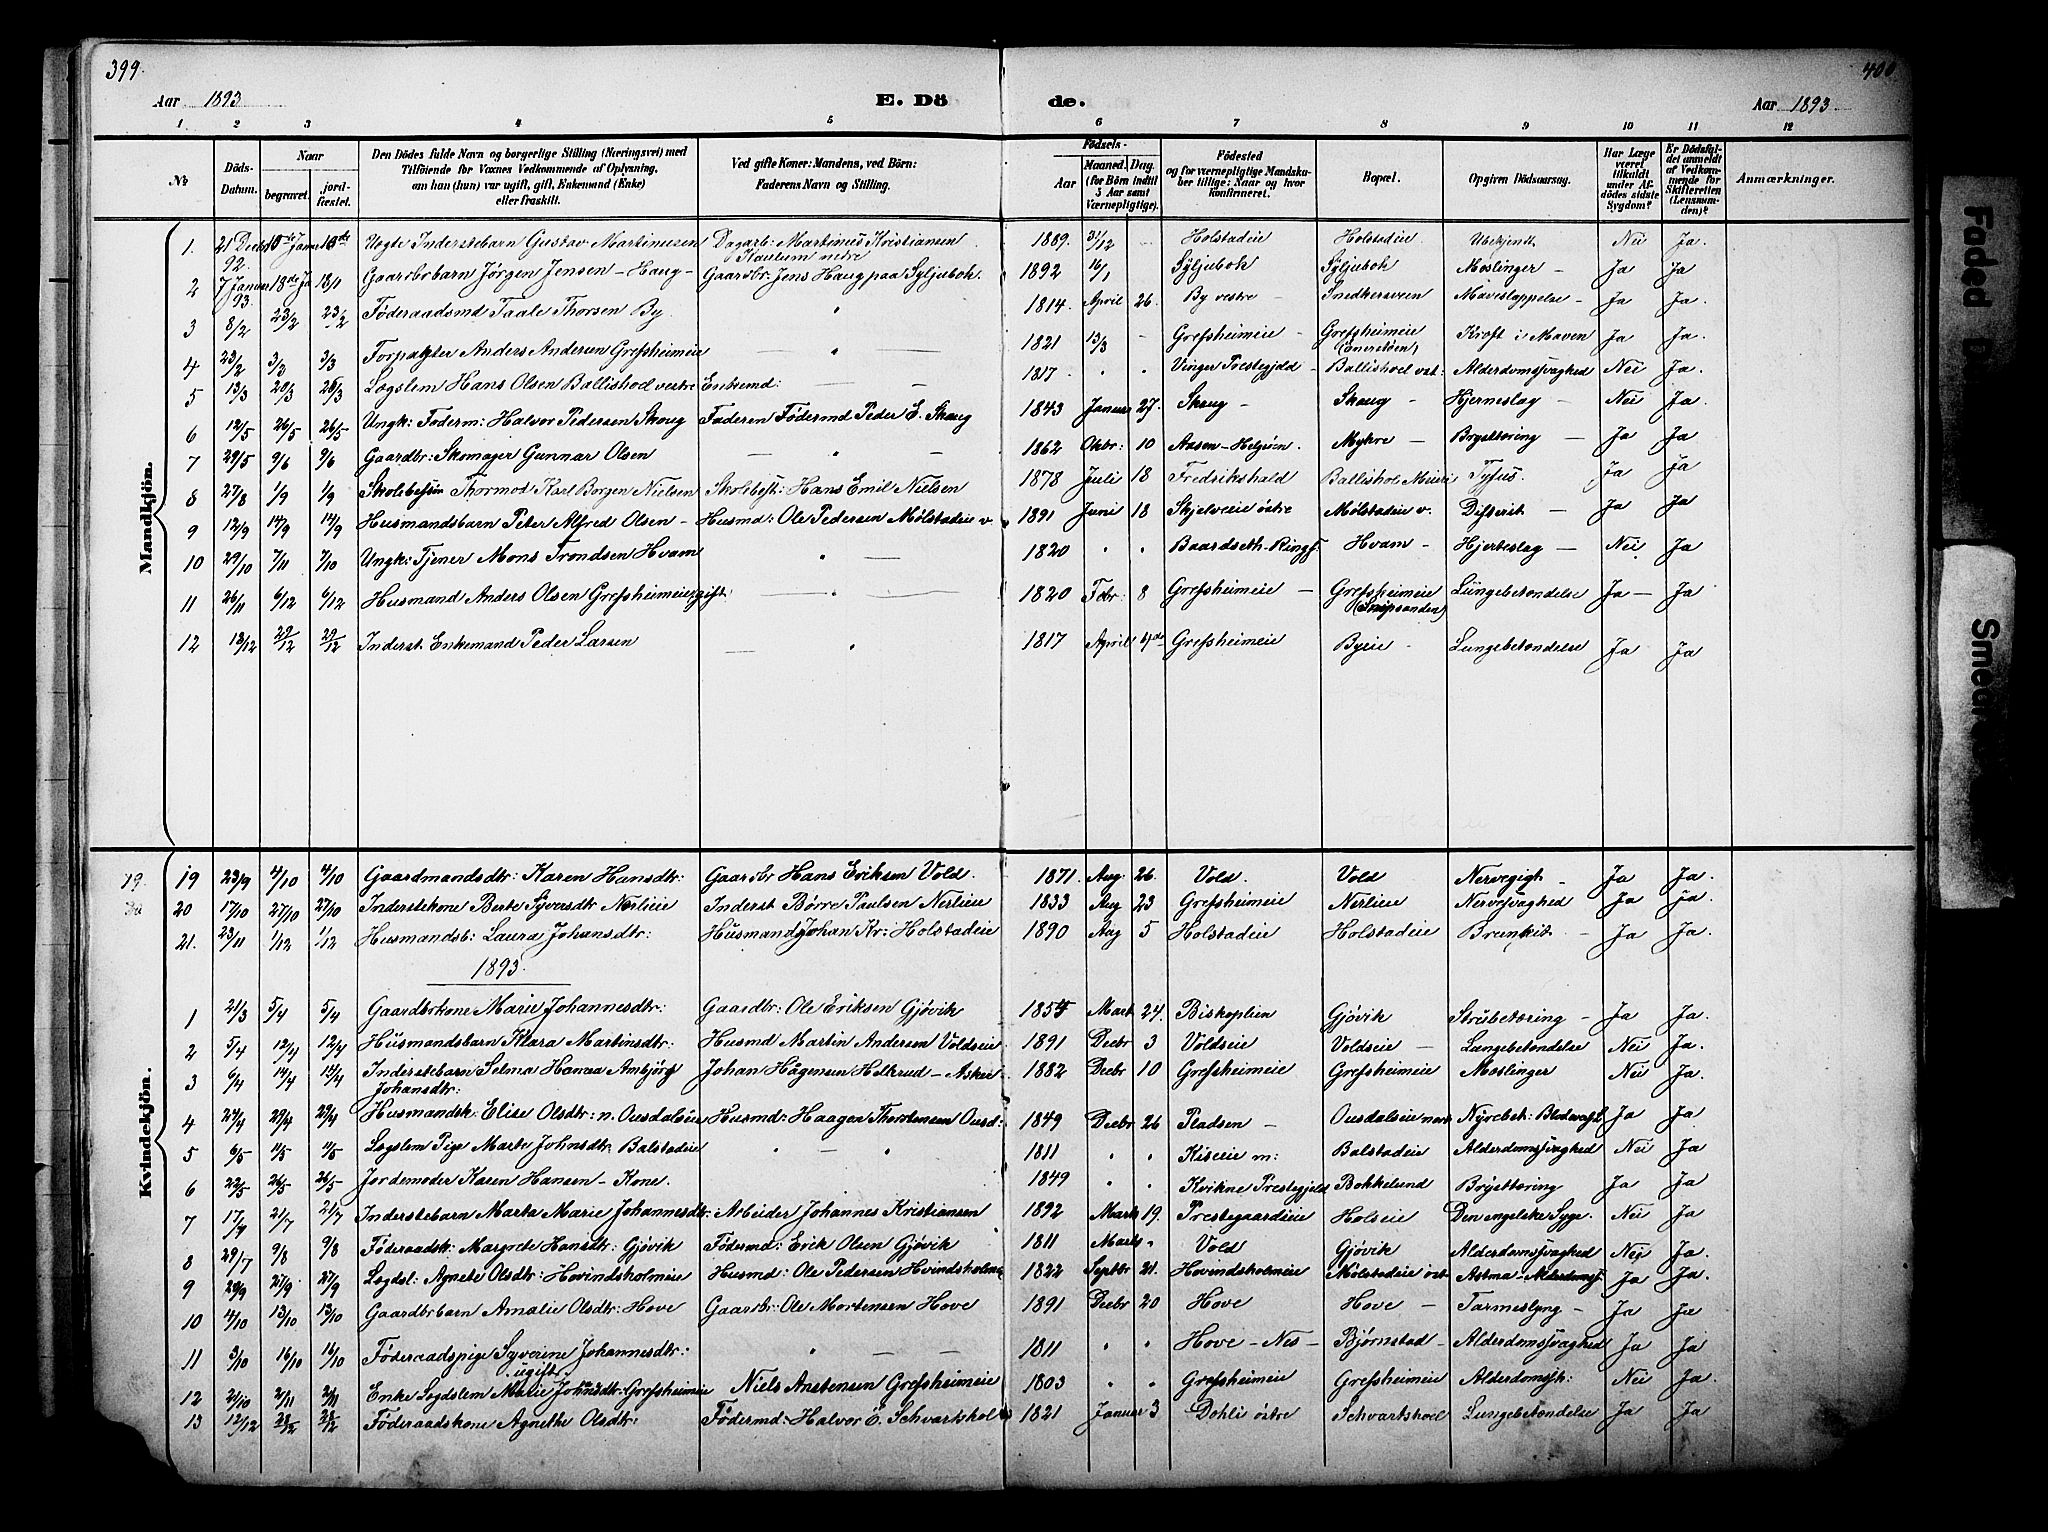 399.
400
Aar 1893
E. Dö
de.
Aar 1893
1. 2 3 4 5 6 7 8 9 10 11 12
№
Döds-Datum.
Naar
begravet.
jordfæstet.
Den Dödes fulde Navn og borgerlige Stilling (Næringsvei) med Tilföiende for Voxnes Vedkommende af Oplysning, om han (hun) var ugift, gift, Enkemand (Enke) eller fraskilt.
Ved gifte Koner: Mandens, ved Börn: Faderens Navn og Stilling.
Födsels-
Aar
Maaned. Dag.
(for Börn indtil 5 Aar samt Værnepligtige).
Födested og for værnepligtige Mandskaber tillige: Naar og hvor konfirmeret.
Bopæl.
Opgiven Dödsaarsag.
Har Læge været tilkaldt under Afdödes sidste Sygdom?
Er Dödsfaldet anmeldt af Vedkommende for Skifteretten (Lensmanden)?
Anmærkninger.
Mandkjön.
1. 21 Decbr 92. Ugte Inderstebarn Gustav Martinusen Dagarb: Martinus Kristiansen Kaulum nedre 1889. 31/12 Holstadeie Holstadeie Ubekjendt Nei Ja.
2 7 Januar 93. 18de Ja 18/1 Gaardbrbarn Jørgen Jensen - Haug - Gaardbr: Jens Haug paa Syljubok. 1892 16/1 Syljubok Syljubok Meslinger - Ja Ja
3 8/2 23/2 23/2 Føderaadsmd Taale Thorsen By " 1814. April 26. By vestre - Snedkersveen Maveslappelse - Ja Ja.
4 23/2 3/3 3/3 Forpagter Anders Andersen Grefsheimeie 1821 13/3 Grefsheimeie - Grefsheimeie Kræft i Maven Ja Ja.
5 13/3 20/3 26/3 Logslem Hans Olsen Ballishoel vestre Enkemd: 1817. " " Vinger Prestegjeld - Ballishoel vest. Alderdomssvaghed Nei Ja.
6 12/5 26/5 26/5 Ungk: Føderm: Halvor Pedersen Skoug Faderen Fødermd Peder E. Skoug 1843 Januar 27. Skoug - Skoug - Hjerneslag - Nei Ja.
7 29/5 9/6 9/6 Gaardbr: Skomager Gunnar Olsen " 1862 Oktbr: 10 Aasen - Helgøen. Myhre - Brysttæring - Ja Ja
8 27/8 1/9 1/9 Skolebestbarn Thormod Karl Borgen Nielsen Skolebest: Hans Emil Nielsen 1878 Juli 18 Fredrikshald Ballishol Tyfus Ja Ja
9 12/9 14/9 14/9 Husmandsbarn Peter Alfred Olsen - Husmd: Ole Pedersen Mølstadeie v. 1891 Juni 18 Skjelveeie østre Mølstadeie v. Difterit - Ja Ja
10 29/10 7/11 7/10 Ungk: Tjener Mons Trondsen Hvam " 1820 " " Baardseth-Rings. Hvam - Hjerteslag - Nei Ja
11 26/11 6/12 6/12 Husmand Anders Olsen Grefsheimeie (gift) " 1820 Febr: 8 Grefsheimeie - Grefsheimeie Lungebetændelse Ja - Ja
12 18/12 29/12 29/12 Inderst Enkemand Peder Larsen " 1817 April 4de Grefsheimeie Byeie - Lungebetændelse Ja Ja
Kvindekjön.
19. 19 23/9 4/10 4/10 Gaardmandsdtr: Karen Hansdtr: Gaardbr Hans Eriksen Vold. 1871. Aug. 26. Vold. Vold Nervegigt - Ja Ja.
20 20 17/10 27/10 27/10 Inderstekone Berte Syversdtr Nerlieie Inderst Børre Paulsen Nerlieie 1833 Aug 23 Grefsheimeie Nerlieie Nervesvaghed Ja Ja
21. 23/11 1/12 1/12 Husmandsb: Laura Johansdtr: Husmand Johan Kr: Holstadeie 1890 Aug 5 Holstadeie Holstadeie Brunkit - Ja Ja.
1893.
1 21/3 5/4 5/4 Gaardbrkone Marie Johannesdtr: Gaardbr: Ole Eriksen Gjøvik 1854 Mart 24. Biskoplien Gjøvik Strubetæring - Ja Ja.
2 5/4 12/4 12/4 Husmandsbarn Klara Martinsdtr: Husmd Martin Andersen Voldseie 1891 Decbr 3 Voldseie Voldseie - Lungebetændelse Nei Ja.
3 6/4 14/4 14/4 Inderstebarn Selma Hanna Ambjørg Johansdtr: Johan Hågensen Helkrud - Askeie 1882 Decbr 10 Grefsheimeie Grefsheimeie Meslinger Nei Ja.
4 24/4 29/4 29/4 Husmandsk: Elise Olsdtr: n. Ousdalseie Husmd: Haagen Thorstensen Ousd: 1849 Decbr 26 Pladsen - Ousdalseie nedr Nyrebet: Ja Ja
5 6/5 11/5 11/5 Logslem Pige Marte Johnsdtr: Balstadeie " " 1811 " " Kiseeie m: Balstadeie Alderdomssvaghed Nei Ja
6 22/5 26/5 26/5 Jordemoder Karen Hansen - Kone. 1849 " " Kvikne Prestegjeld Bokkelund Brysttæring Ja Ja
7 17/7 21/7 21/7 Inderstebarn Marta Marie Johannesdtr: Arbeider Johannes Kristiansen 1892 Marts 19. Prestegaardseie Holseie Den engelske Syge. Nei Ja
8 29/7 9/8 9/8 Føderaadsk: Margrete Hansdtr: Gjøvik Fødermd: Erik Olsen Gjøvik 1811 Marts " Vold Gjøvik Alderdomssvaghed Nei Ja.
9 20/9 27/9 27/9 Logdsl: Agnete Olsdtr: Hovindsholmeie Husmd: Ole Pedersen Hovindsholmeie 1822 Septbr 21. Hovindsholmeie Mølstadeie øst. Astma - Alderdomss. Ja Ja.
10 4/10 13/10 13/10 Gaardbrbarn Amalie Olsdtr: Hove Gaardbr: Ole Mortensen Hove 1891 Decbr 20 Hove Hove - Tarmeslyng - Ja Ja
11 3/10 16/10 16/10 Føderaadspige Syverine Johannesdtr: ugift " 1811 " " Hove - Nes - Bjørnstad - Alderdomssvaghed Ja Ja
12 2/10 2/11 2/11 Enke Logdslem Marie Johnsdtr: Grefsheimeie Niels Anstensen Grefsheimeie 1803 " " Grefsheimeie Grefsheimeie Alderdomssk: Nei Ja
13 12/12 28/12 28/12 Føderaadskone Agnethe Olsdtr: Fødermd: Halvor E. Schvartshol 1821 Januar 3 Dohli østre Schvartshoel Lungebetændelse Ja Ja